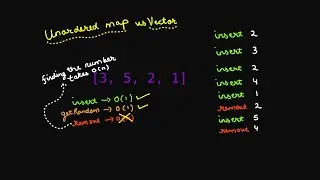 Unordered map vs Vector
finding the number
takes O(n)
[3, 5, 2, 1]
insert → O(1) ✓
getRandom → O(1) ✓
remove →
insert 2
insert 3
insert 2
insert 4
insert 1
remove 2
insert 5
remove 4